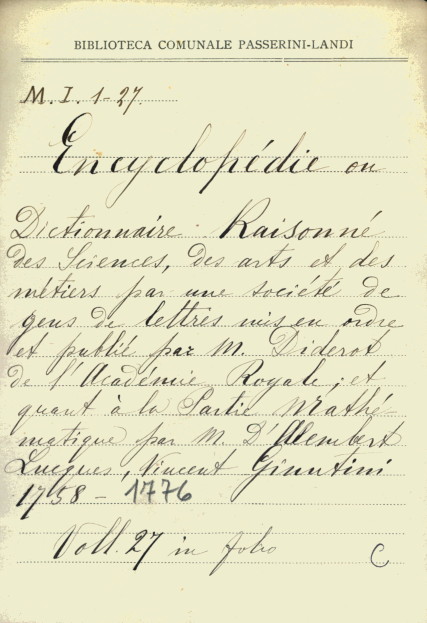 BIBLIOTECA COMUNALE PASSERINI-LANDI
M. I. 1-27.
Encyclopédie ou
Dictionnaire Raisonné
des Sciences, des arts et des
métiers par une société de
gens de lettres mis en ordre
et publié par M. Diderot
de l'Académie Royale; et
quant à la Partie Mathé-
matique par M. D'Alembert
Lucques, Vincent Giuntini
1758 - 1776
Voll. 27 in folio
C